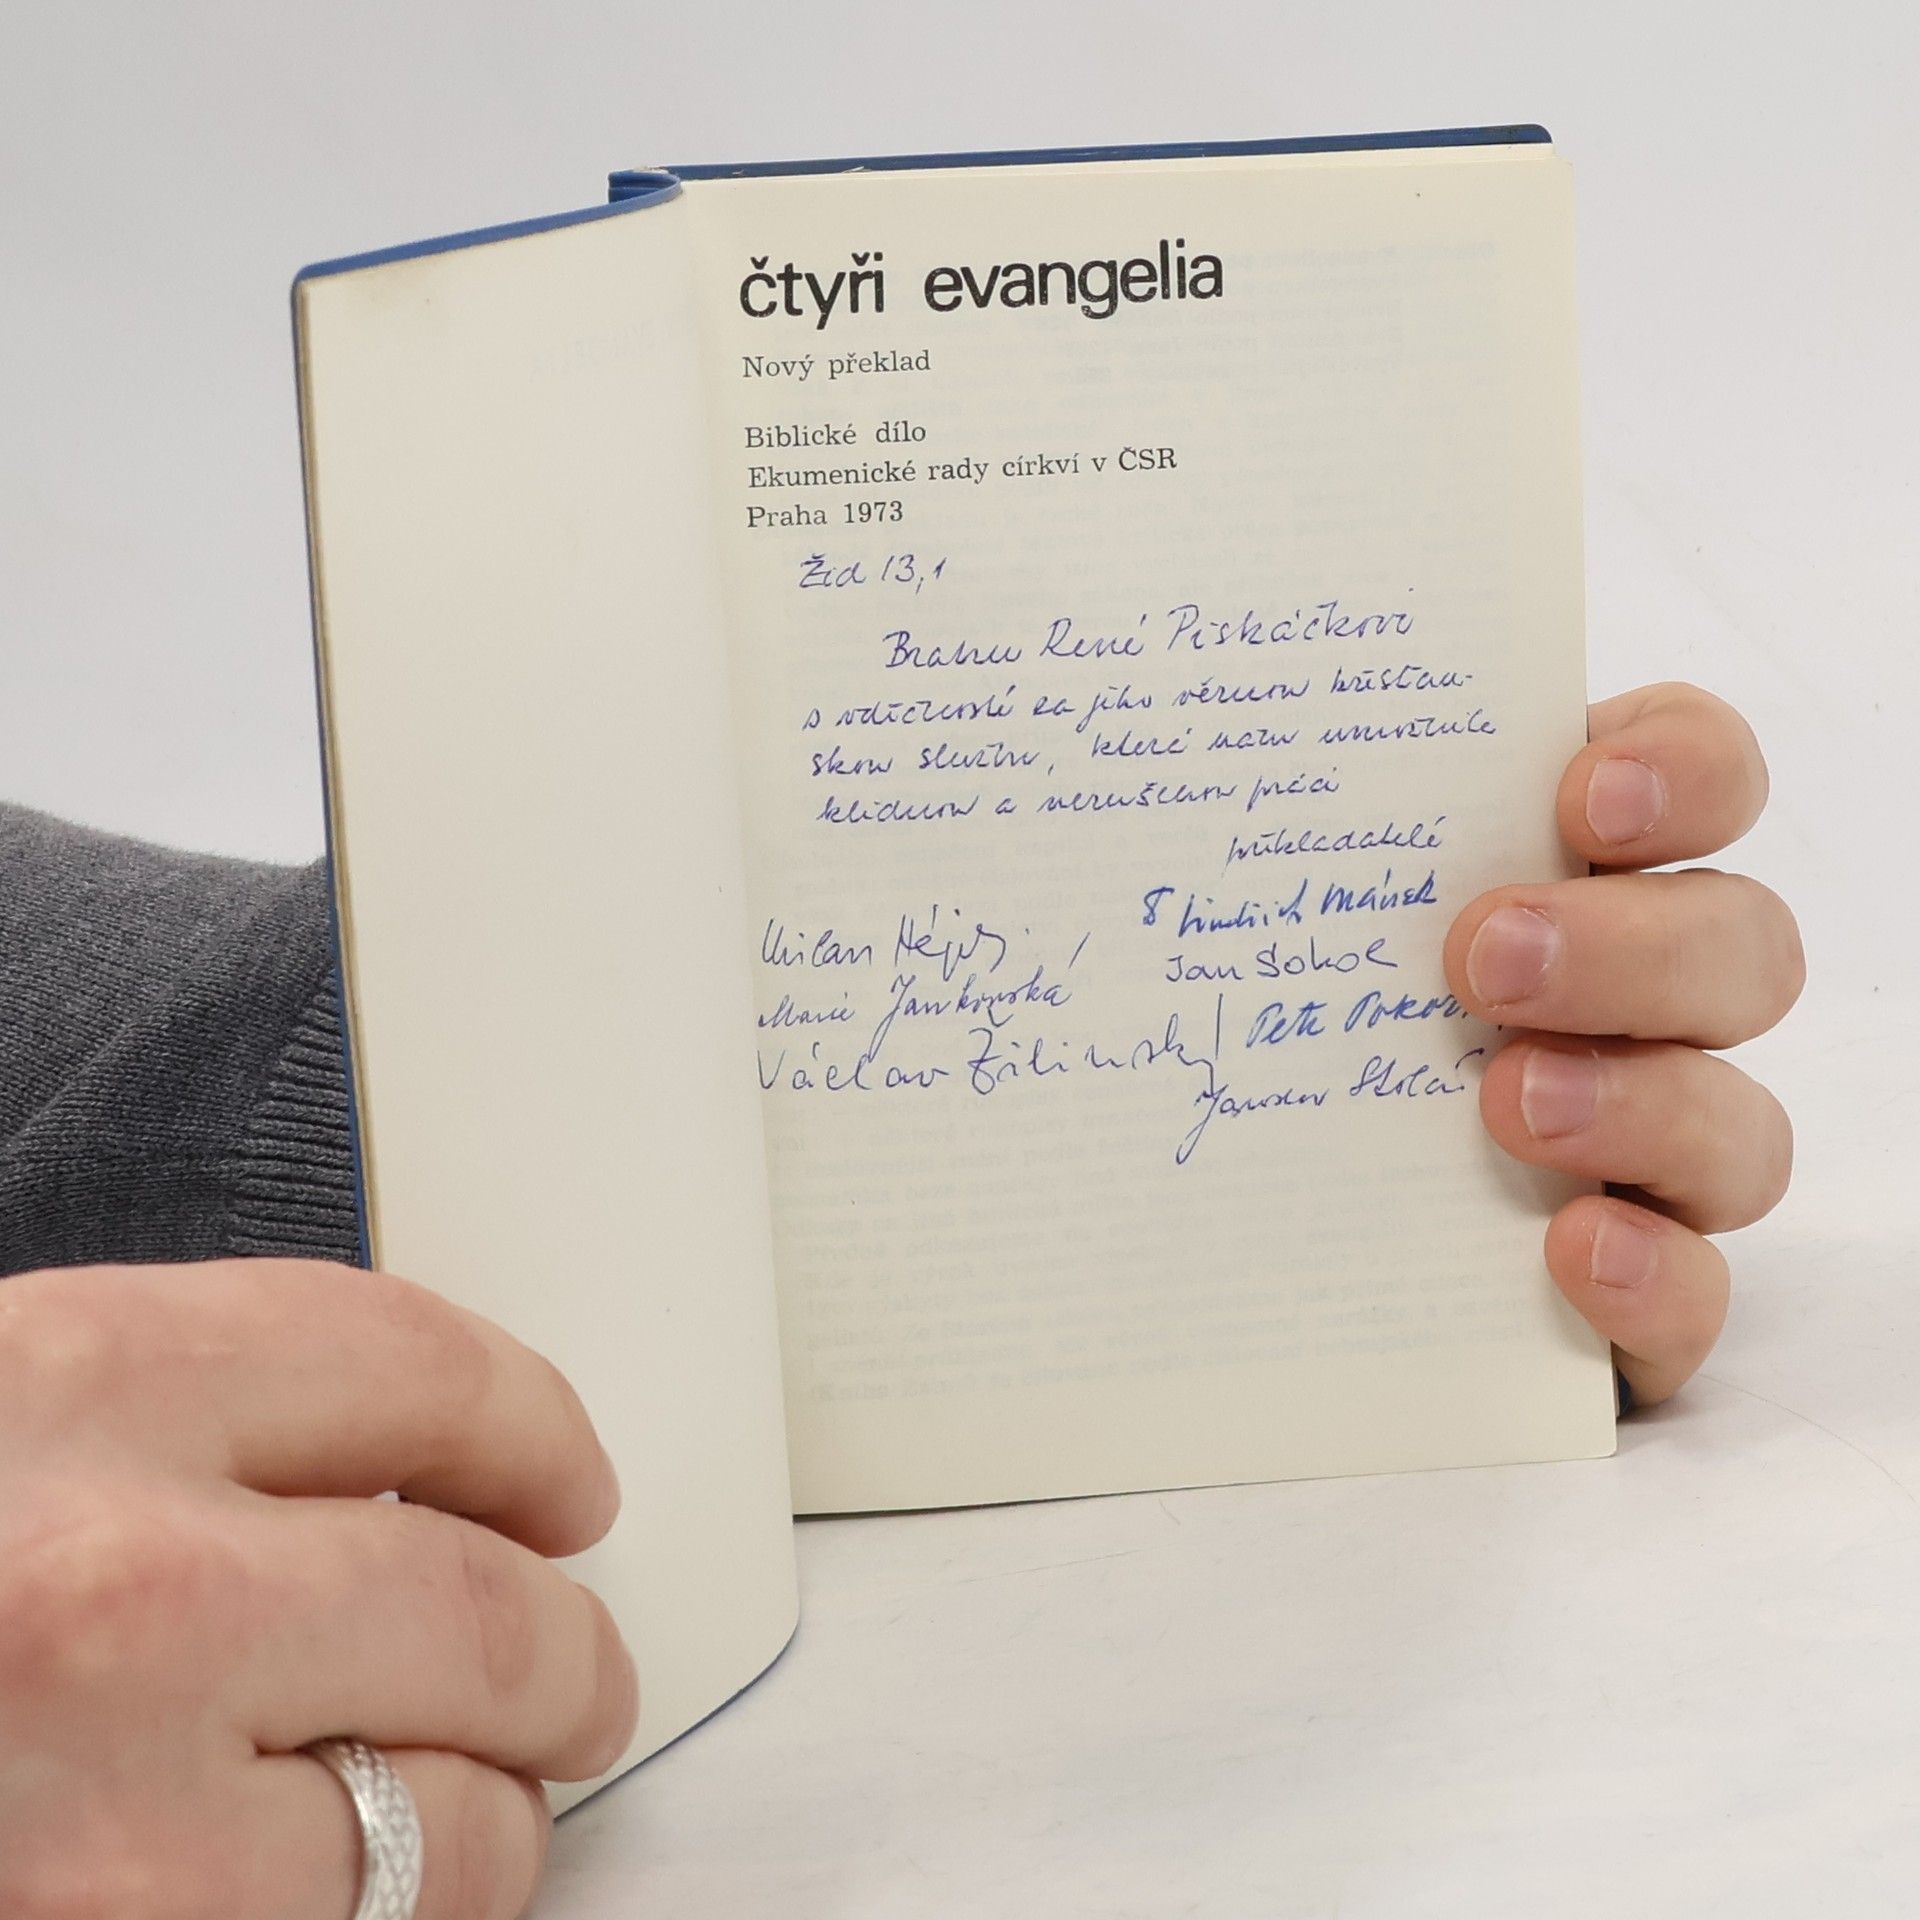 čtyři evangelia
Nový překlad
Biblické dílo
Ekumenické rady církví v ČSR
Praha 1973
Žid 13,1
Bratru René Piskáčkovi
s vděčností za jeho věrnou křesťan-
skou službu, která nám umožnila
klidnou a nerušenou práci
překladatelé
Jindřich Mánek
Milan Hájek
Jan Sokol
Marie Jankovská
Petr
Václav Žilinský
Jaroslav